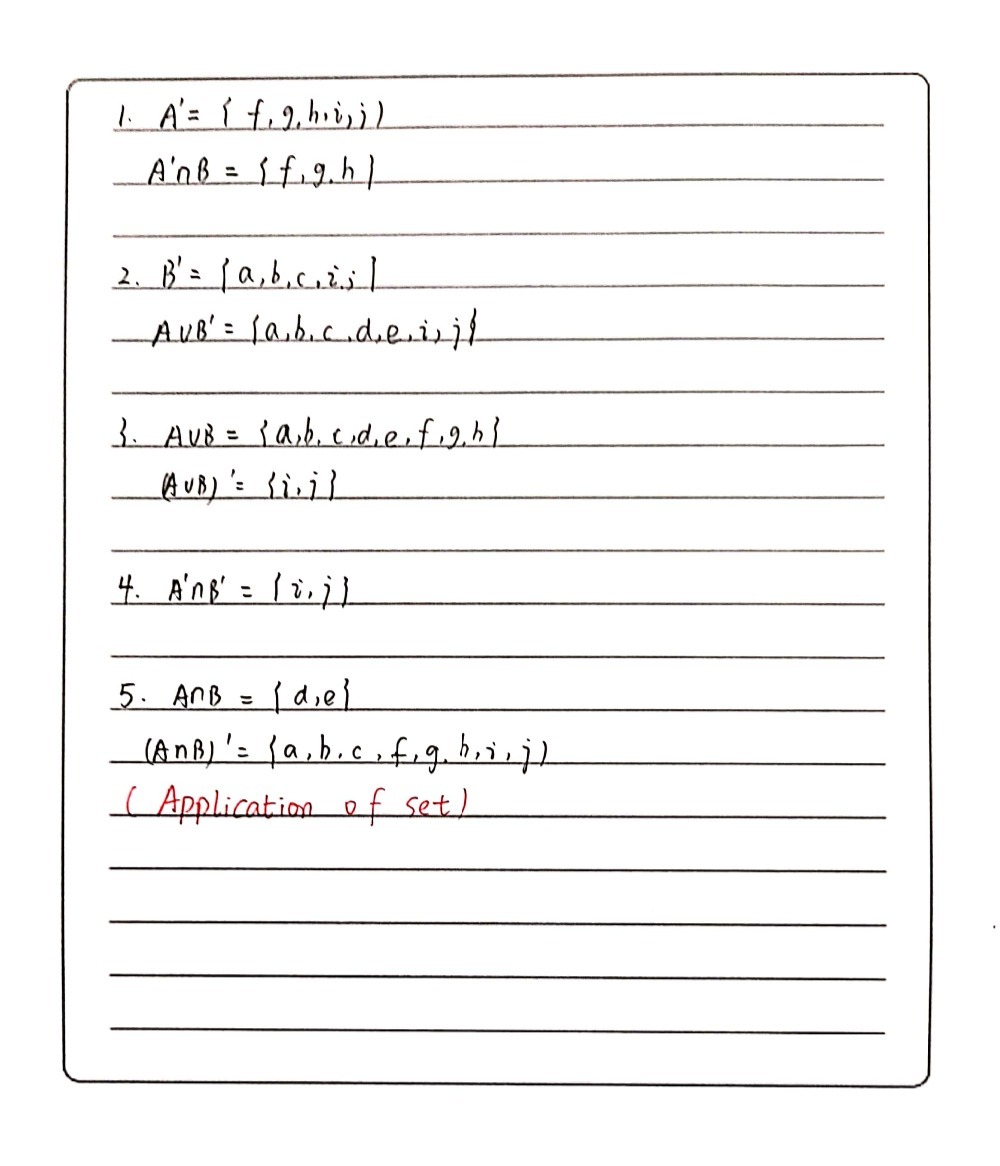 1. A'= { f, g, h, i, j )
A'∩B = { f, g, h }
2. B' = { a, b, c, i, j }
A∪B' = { a, b, c, d, e, i, j }
3. A∪B = { a, b, c, d, e, f, g, h }
(A∪B)' = { i, j }
4. A'∩B' = { i, j }
5. A∩B = { d, e }
(A∩B)' = { a, b, c, f, g, h, i, j )
( Application of set )